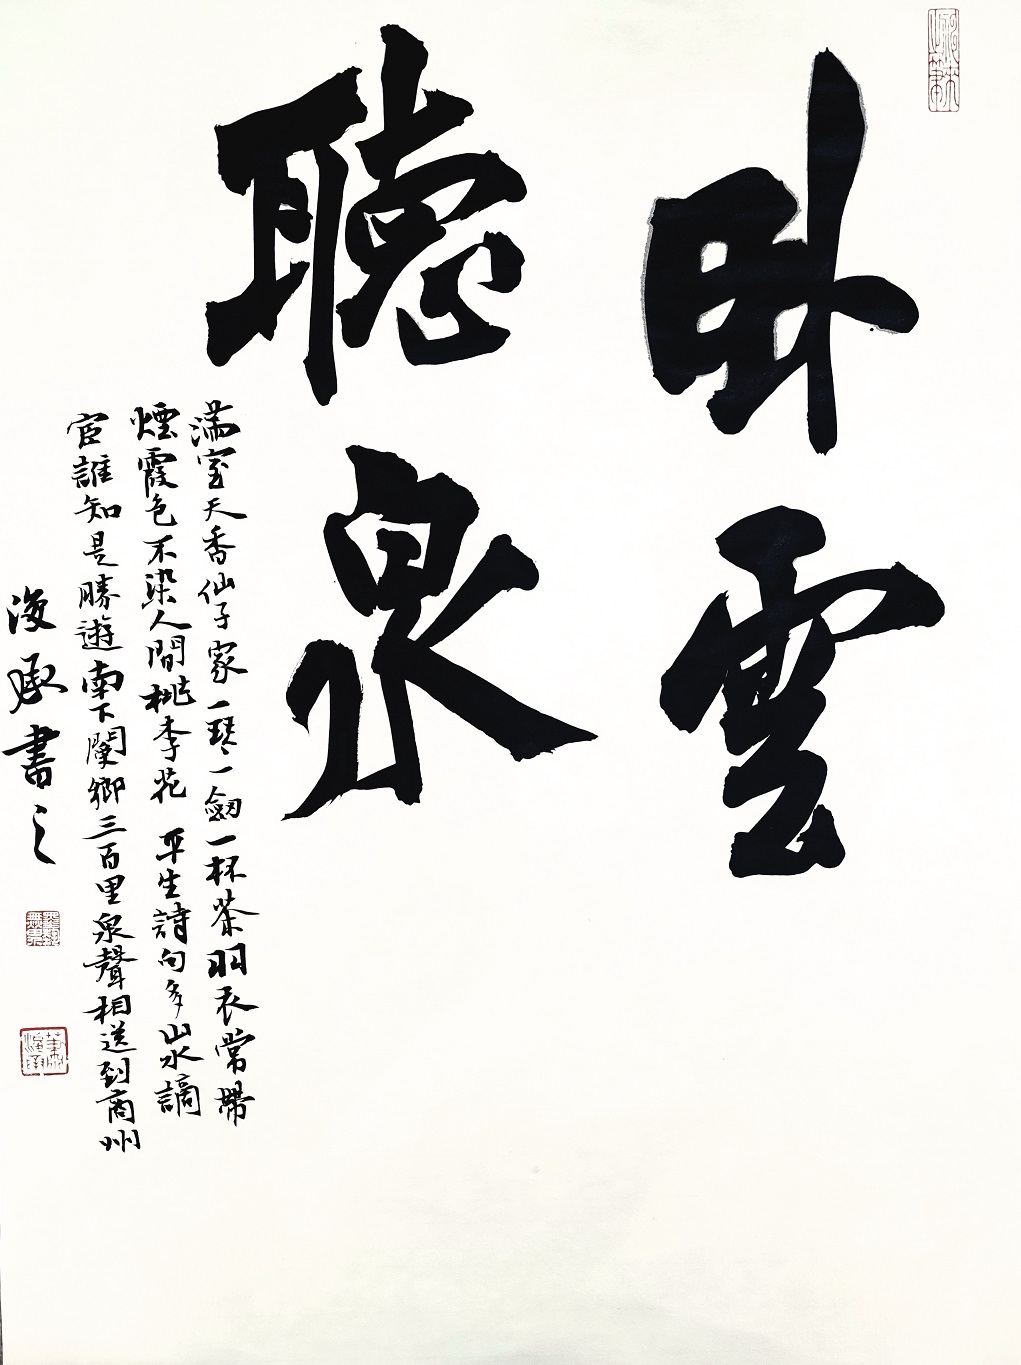 卧雲
聽泉
滿室天香仙子家一琴一劒一杯茶羽衣常帶
煙霞色不染人間桃李花 平生詩句多山水謫
宦誰知是勝遊南下閿鄉三百里泉聲相送到商州
海承書之